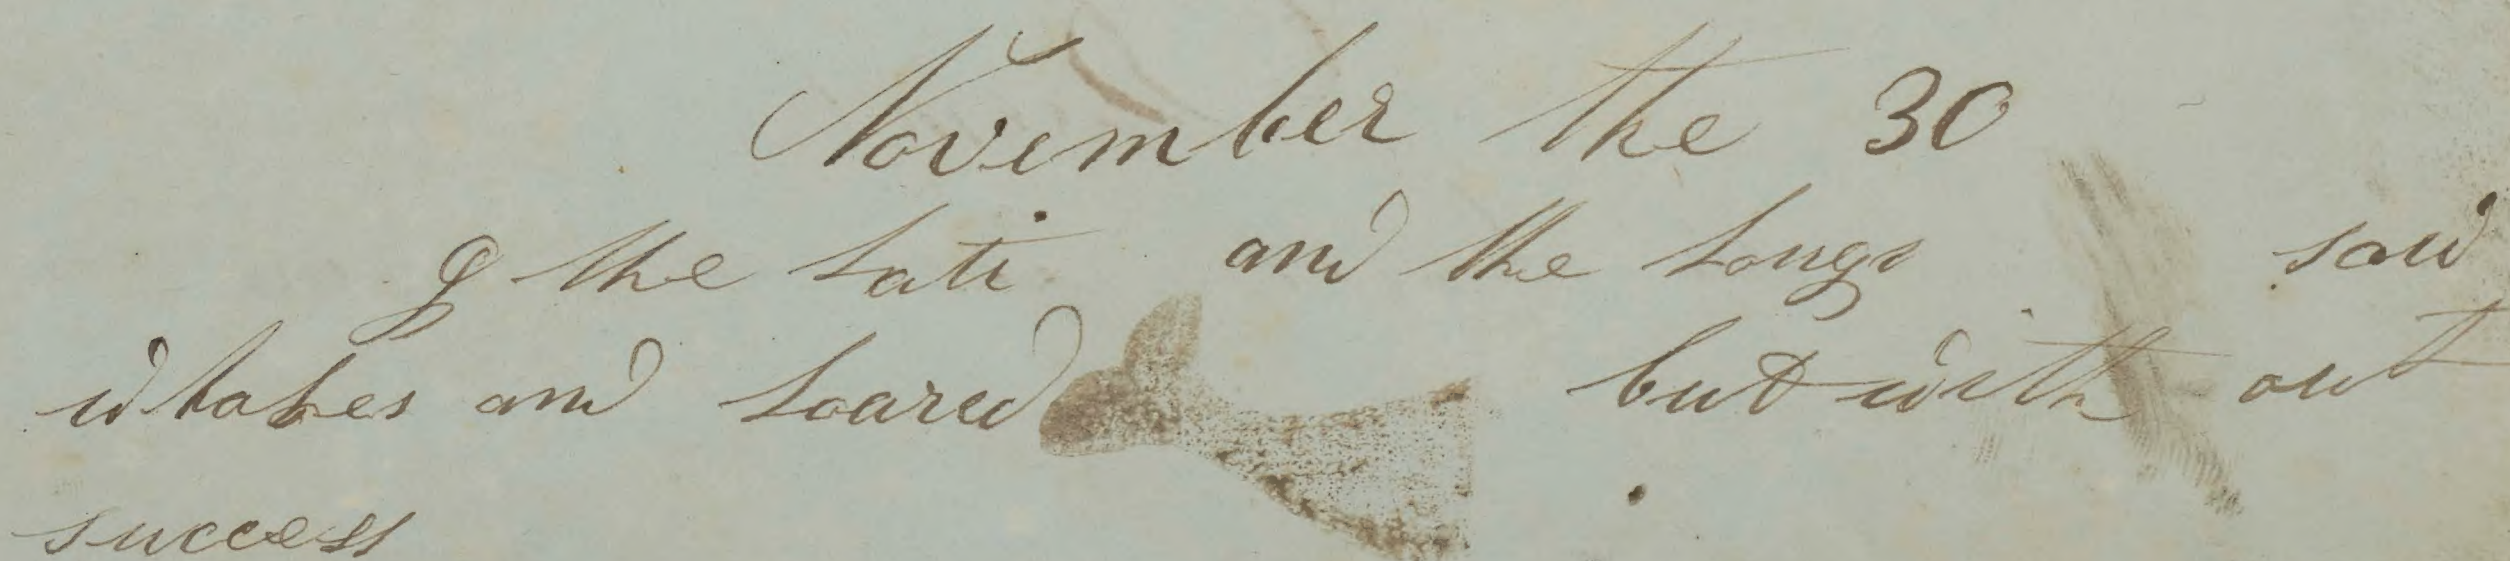 November the 30
g the Lati and the Longs saw
whales and Loared but with out
success